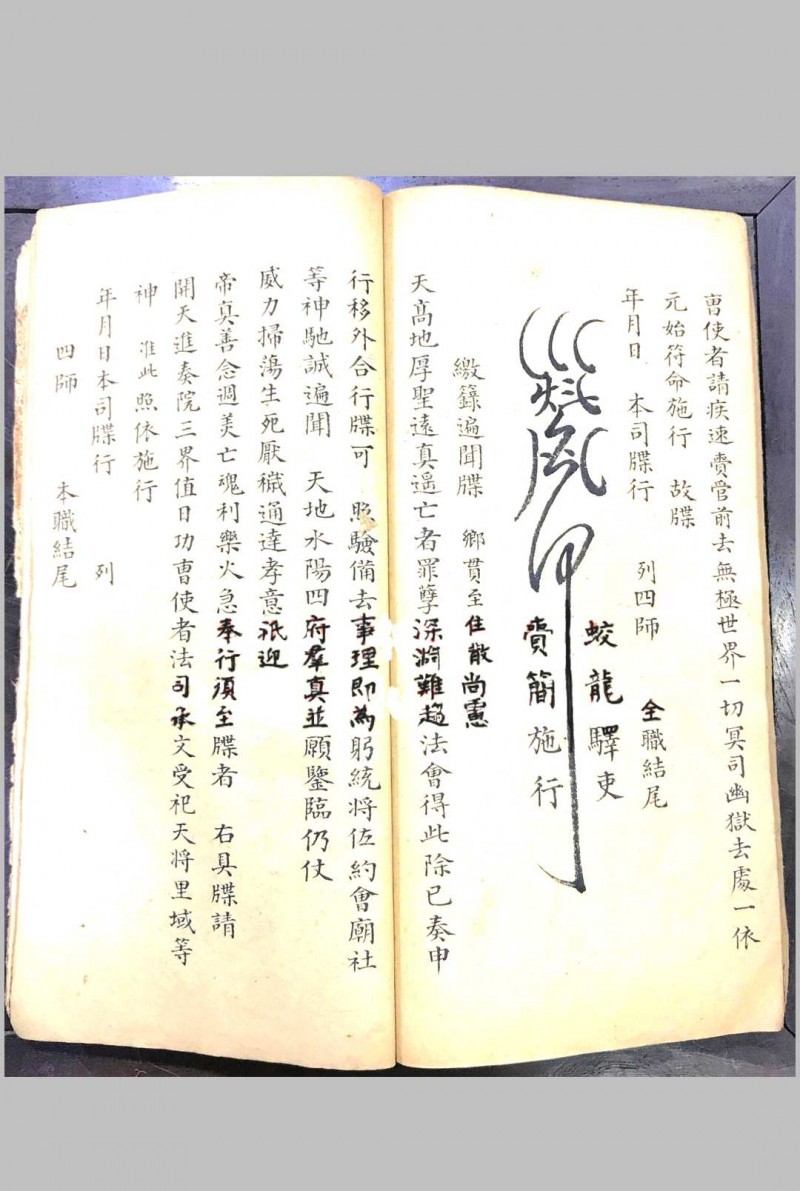 曺使者請疾速賫管前去無極世界一切冥司幽獄去處一依
元始符命施行 故牒
年月日 本司牒行 列四師 全職結尾
蛟龍驛吏
賫簡施行
繳籙遍聞牒 鄉貫至住散尚憲
天髙地厚聖遠真遥亡者罪孽深漪難趨法會得此除已奏申
行移外合行牒可 照驗備去事理即為躬統将佐約會廟社
等神馳誠遍聞 天地水陽四府羣真並願鑒臨仍仗
威力掃蕩生死厭穢通達孝意祇迎
帝真善念週美亡魂利樂火急奉行須至牒者 右具牒請
開天進奏院三界值日功曺使者法司承文受祀天将里域等
神 准此照依施行
年月日本司牒行 列
四師 本職結尾